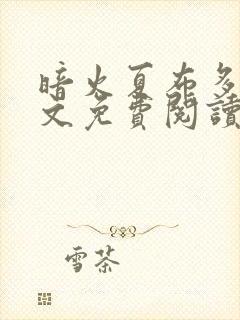 暗火夏布多
文免費閱讀
雪茶